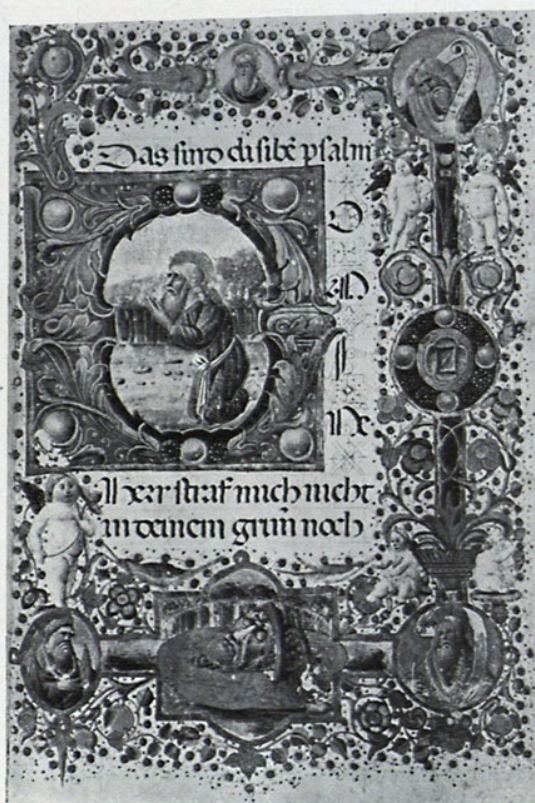 Das sind di sibē psalm
O
M
I
Ne
Herr straf mich nicht
in deinem grim noch